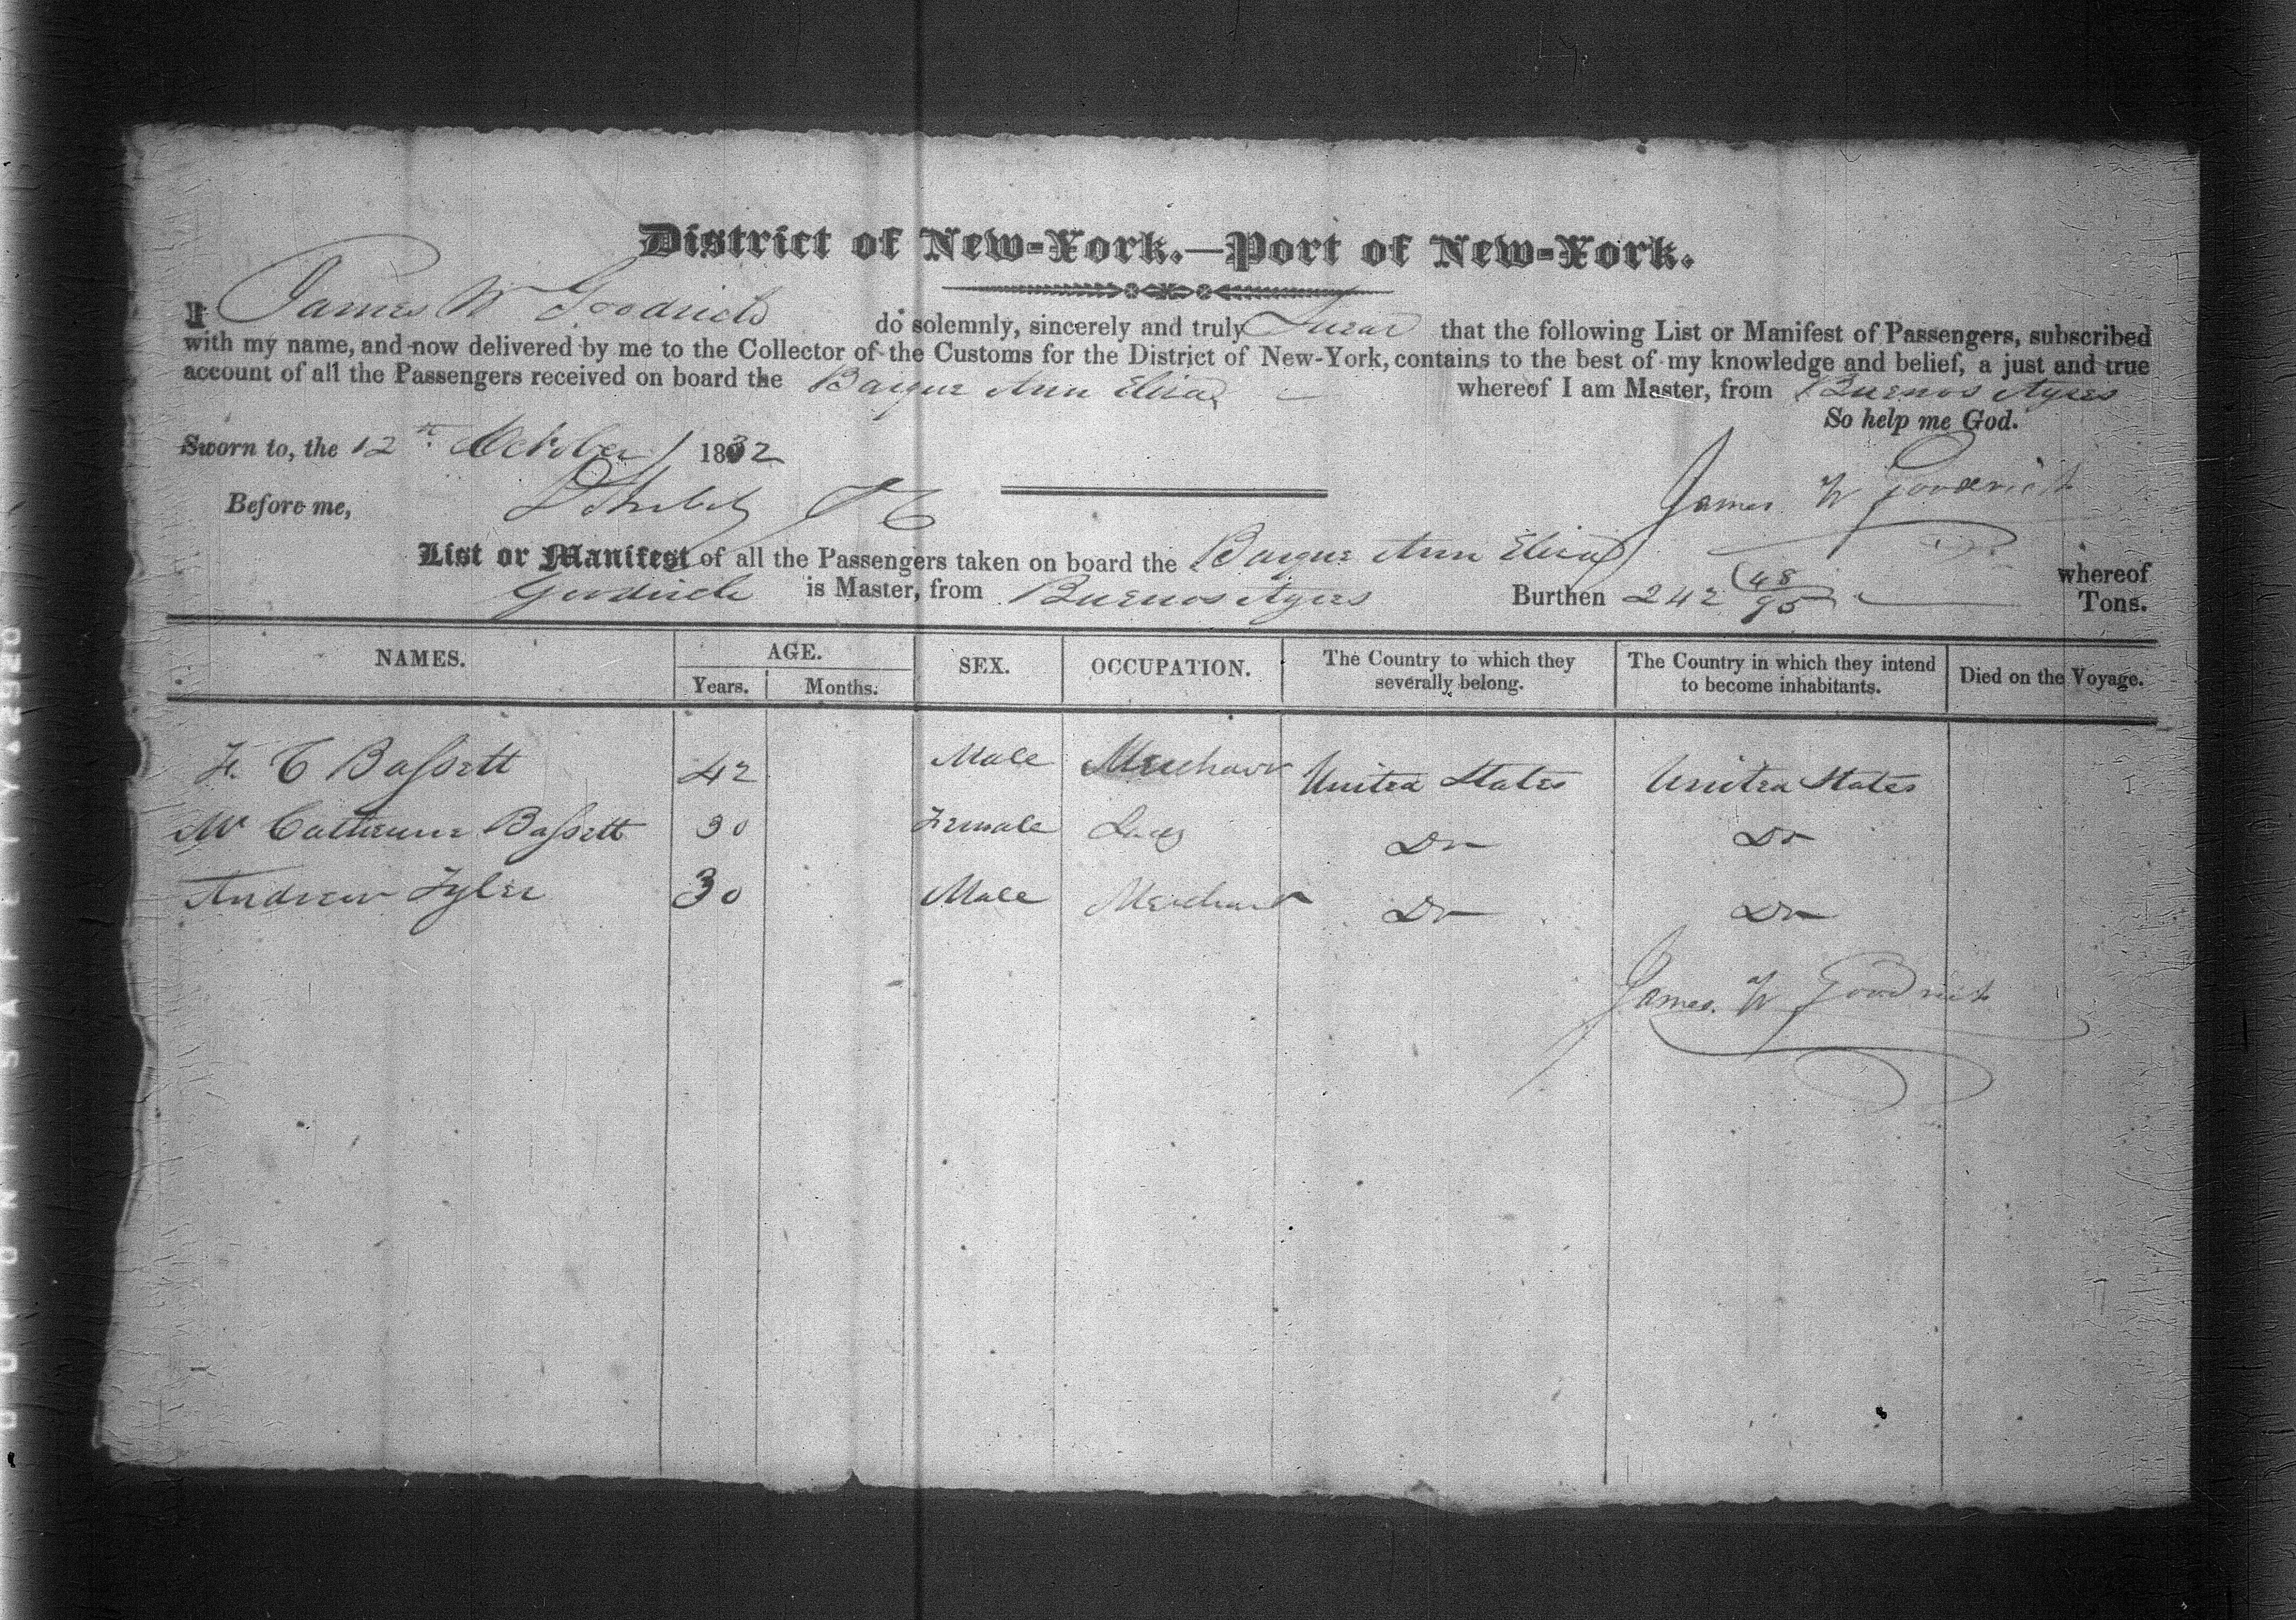 District of New-York.—Port of New-York.
I James W Goodrich do solemnly, sincerely and truly Swear that the following List or Manifest of Passengers, subscribed
with my name, and now delivered by me to the Collector of the Customs for the District of New-York, contains to the best of my knowledge and belief, a just and true
account of all the Passengers received on board the Barque Ann Eliza whereof I am Master, from Buenos Ayres
So help me God.
Sworn to, the 12th October 1832
Before me, James W Goodrich
List or Manifest of all the Passengers taken on board the Barque Ann Eliza whereof
Goodrich is Master, from Buenos Ayres Burthen 242 48/95 Tons.
NAMES. AGE. Years. Months. SEX. OCCUPATION. The Country to which they severally belong. The Country in which they intend to become inhabitants. Died on the Voyage.
F. C Bassett 42 Male Merchant United States United States
Mrs Catherine Bassett 30 Female Lady Do Do
Andrew Tyler 30 Male Merchant Do Do
James W Goodrich